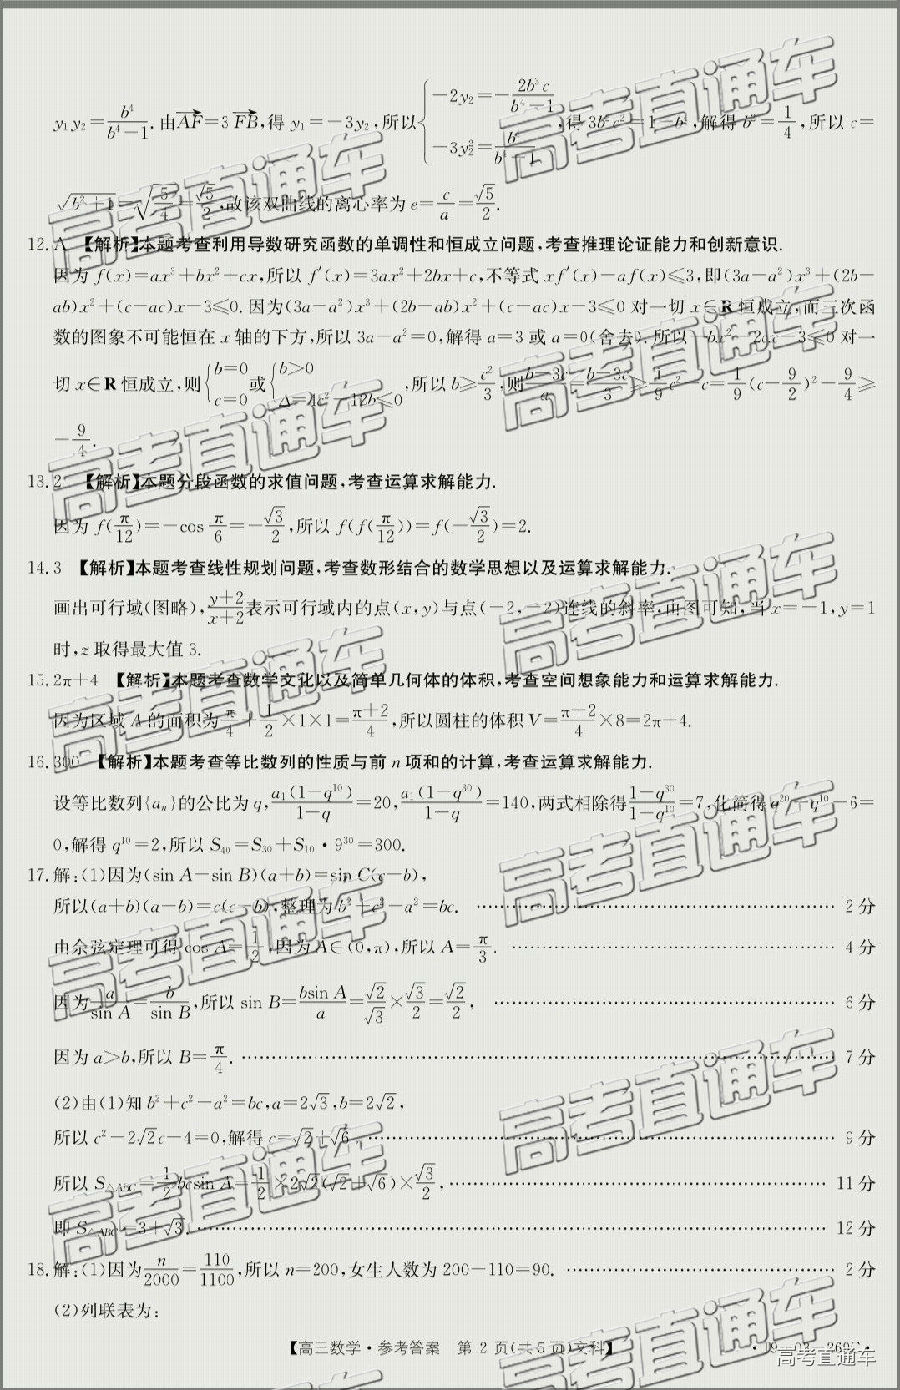 y₁y₂=b⁴/(b⁴-1).由AF=3FB,得 y₁=-3y₂,所以{-2y₂=-2b³c/(b⁴-1) -3y₂²=b⁴/(b⁴-1) ,得3b²c²=1-b⁴,解得b²=1/4,所以c=
√(b²+1)=√(5/4)=√5/2,故该双曲线的离心率为e=c/a=√5/2.
12.A 【解析】本题考查利用导数研究函数的单调性和恒成立问题,考查推理论证能力和创新意识.
因为 f(x)=ax³+bx²+cx,所以 f′(x)=3ax²+2bx+c,不等式 xf′(x)-af(x)≤3,即(3a-a²)x³+(2b-
ab)x²+(c-ac)x-3≤0.因为(3a-a²)x³+(2b-ab)x²+(c-ac)x-3≤0 对一切 x∈R 恒成立,而三次函
数的图象不可能恒在 x 轴的下方,所以 3a-a²=0,解得 a=3 或 a=0(舍去).所以-bx²-2cx-3≤0 对一
切 x∈R 恒成立,则{b=0 c=0 或{b>0 Δ=4c²-12b≤0 ,所以 b≥c²/3,则(b-3c)/a=(b-3c)/3≥1/9c²-c=1/9(c-9/2)²-9/4≥
-9/4.
13.2 【解析】本题分段函数的求值问题,考查运算求解能力.
因为 f(π/12)=-cos π/6=-√3/2,所以 f(f(π/12))=f(-√3/2)=2.
14.3 【解析】本题考查线性规划问题,考查数形结合的数学思想以及运算求解能力.
画出可行域(图略),(y+2)/(x+2)表示可行域内的点(x,y)与点(-2,-2)连线的斜率,由图可知,当 x=-1,y=1
时,z 取得最大值 3.
15.2π+4 【解析】本题考查数学文化以及简单几何体的体积,考查空间想象能力和运算求解能力.
因为区域 A 的面积为π/4+1/2×1×1=(π+2)/4,所以圆柱的体积 V=(π-2)/4×8=2π-4.
16.300 【解析】本题考查等比数列的性质与前 n 项和的计算,考查运算求解能力.
设等比数列{aₙ}的公比为 q,a₁(1-q¹⁰)/(1-q)=20,a₁(1-q³⁰)/(1-q)=140,两式相除得(1-q³⁰)/(1-q¹⁰)=7,化简得 q²⁰+q¹⁰-6=
0,解得 q¹⁰=2,所以 S₄₀=S₃₀+S₁₀·9³⁰=300.
17.解:(1)因为(sin A-sin B)(a+b)=sin C(c-b),
所以(a+b)(a-b)=c(c-b),整理为 b²+c²-a²=bc. ………… 2 分
由余弦定理可得 cos A=1/2,因为 A∈(0,π),所以 A=π/3. ………… 4 分
因为a/sin A=b/sin B,所以 sin B=bsin A/a=√2/√3×√3/2=√2/2, ………… 6 分
因为 a>b,所以 B=π/4. ………… 7 分
(2)由(1)知 b²+c²-a²=bc,a=2√3,b=2√2,
所以 c²-2√2c-4=0,解得 c=√2+√6, ………… 9 分
所以 S△ABC=1/2bcsin A=1/2×2√2(√2+√6)×√3/2, ………… 11 分
即 S△ABC=3+√3. ………… 12 分
18.解:(1)因为n/2000=110/1100,所以 n=200,女生人数为 200-110=90. ………… 2 分
(2)列联表为:
【高三数学·参考答案 第 2 页(共 5 页)文科】
高考直通车